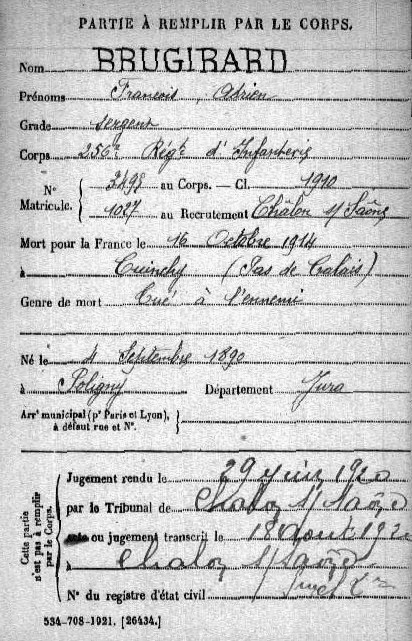 PARTIE À REMPLIR PAR LE CORPS.
Nom BRUGIRARD
Prénoms François Adrien
Grade Sergent
Corps 256e Régt d'Infanterie
N° Matricule. { 3498 au Corps. — Cl. 1910
1027 au Recrutement Châlon s/ Saône
Mort pour la France le 16 Octobre 1914
à Cuinchy (Pas de Calais)
Genre de mort Tué à l'ennemi
Né le 4 Septembre 1890
à Poligny Département Jura
Arrt municipal (pr Paris et Lyon),
à défaut rue et N°.
Cette partie n'est pas à remplir par le Corps.
Jugement rendu le 29 juin 1920
par le Tribunal de Chalon s/ Saône
acte ou jugement transcrit le 18 août 1920
à Chalon s/ Saône
N° du registre d'état civil
534-708-1921. [26434.]